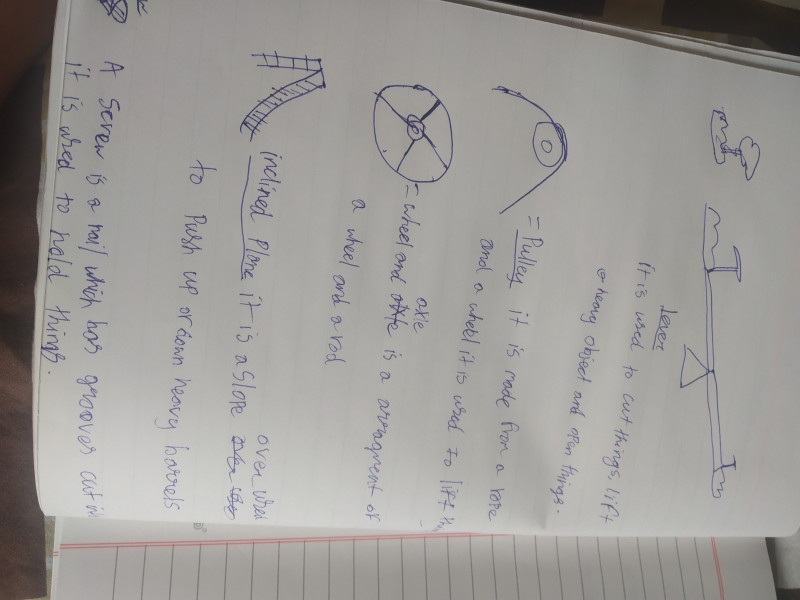 Lever
it is used to cut things, lift
heavy object and open things.
= Pulley it is made from a rope
and a wheel it is used to lift
axe
= wheel and is a arrangment of
a wheel and a rod
over
inclined plane it is a slope
to Push up or down heavy barrels
A Screw is a nail which has grooves cut in
it is used to hold things.